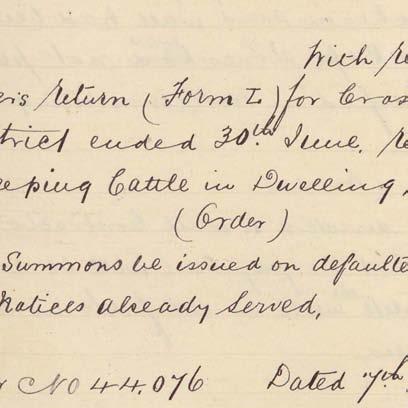 With re
er's return (Form I.) for Cross
trict ended 30th. June, re
eeping Cattle in Dwelling
(Order)
Summons be issued on defaulte
Notices already served,
r No 44,076 Dated 7th.